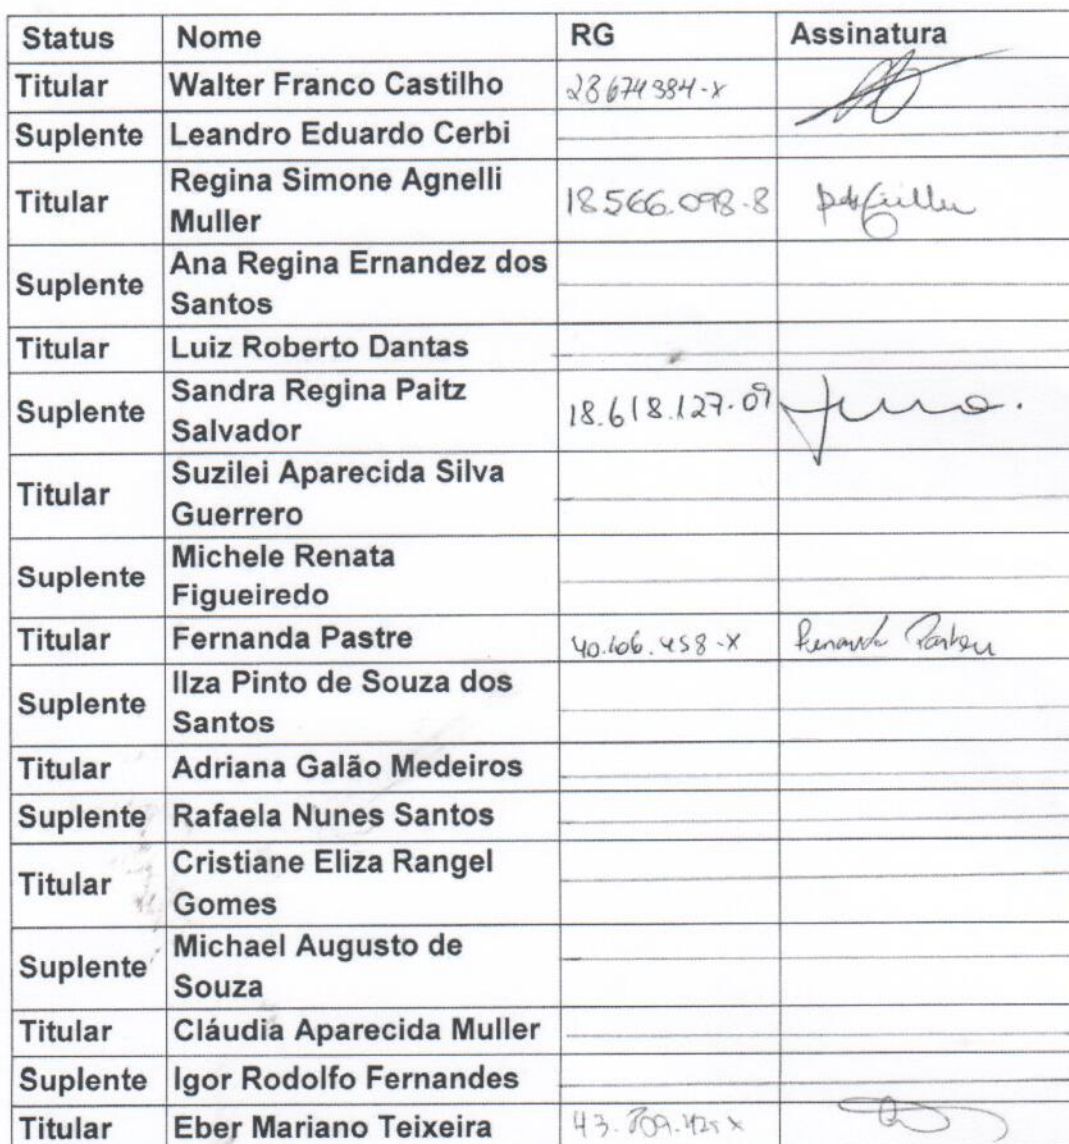 Status Nome RG Assinatura
Titular Walter Franco Castilho 28674384-x
Suplente Leandro Eduardo Cerbi
Titular Regina Simone Agnelli
Muller 18.566.098-8
Suplente Ana Regina Ernandez dos
Santos
Titular Luiz Roberto Dantas
Suplente Sandra Regina Paitz
Salvador 18.618.127-09
Titular Suzilei Aparecida Silva
Guerrero
Suplente Michele Renata
Figueiredo
Titular Fernanda Pastre 40.606.458-X Fernanda
Suplente Ilza Pinto de Souza dos
Santos
Titular Adriana Galão Medeiros
Suplente Rafaela Nunes Santos
Titular Cristiane Eliza Rangel
Gomes
Suplente Michael Augusto de
Souza
Titular Cláudia Aparecida Muller
Suplente Igor Rodolfo Fernandes
Titular Eber Mariano Teixeira